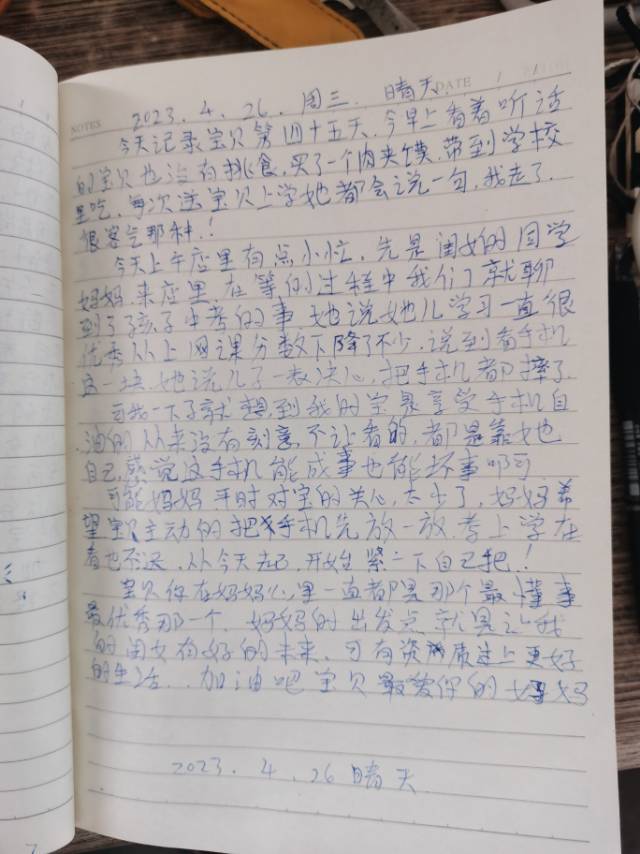 2023.4.26.周三.晴天
DATE
NOTES
今天记录宝贝第四十五天、今早上看着听话
的宝贝也没有挑食,买了一个肉夹馍.带到学校
里吃,每次送宝贝上学她都会说一句,我走了.
很客气那种.!
今天上午店里有点小忙.先是闺女的同学
妈妈.来店里.在等的过程中我们就聊
到了孩子中考的事 她说她儿学习一直很
优秀从上网课分数下降了不少.说到看手机
这一块.她说儿子一表决心,把手机都摔了.
可我一下子就想到我的宝是享受手机自
油的从来没有刻意不让看的,都是靠她
自己.感觉这手机能成事也能坏事啊可
可能妈妈平时对宝的关心,太少了,妈妈希
望宝贝主动的把手机先放一放.考上学在
看也不迟.从今天起,开始紧一下自己把!
宝贝你在妈妈心里一直都是那个最懂事
最优秀那一个.妈妈的出发点就是让我
的闺女有好的未来.可有资质过上更好
的生活..加油吧宝贝最爱你的妈妈
2023.4.26晴天